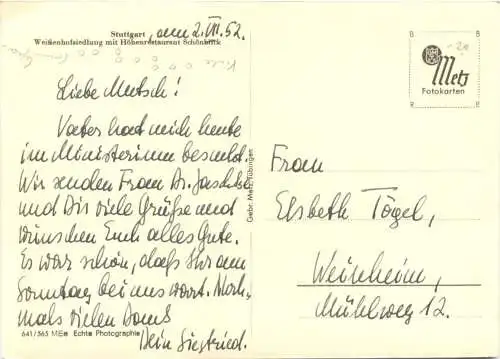 Stuttgart, am 2. VII. 52.
Weißenhofsiedlung mit Höhenrestaurant Schönblick
Liebe Mutsch!
Vater hat mich heute
im Ministerium besucht.
Wir senden Frau Dr.
und Dir viele Grüße und
wünschen Euch alles Gute.
Es war schön, daß Ihr am
Sonntag bei uns wart. Noch-
mals vielen Dank
Dein Siegfried.
641/565 MEe Echte Photographie
Gebr. Metz, Tübingen
Metz
Fotokarten
Frau
Elsbeth Tögel,
Weinheim,
Mühlweg 12.